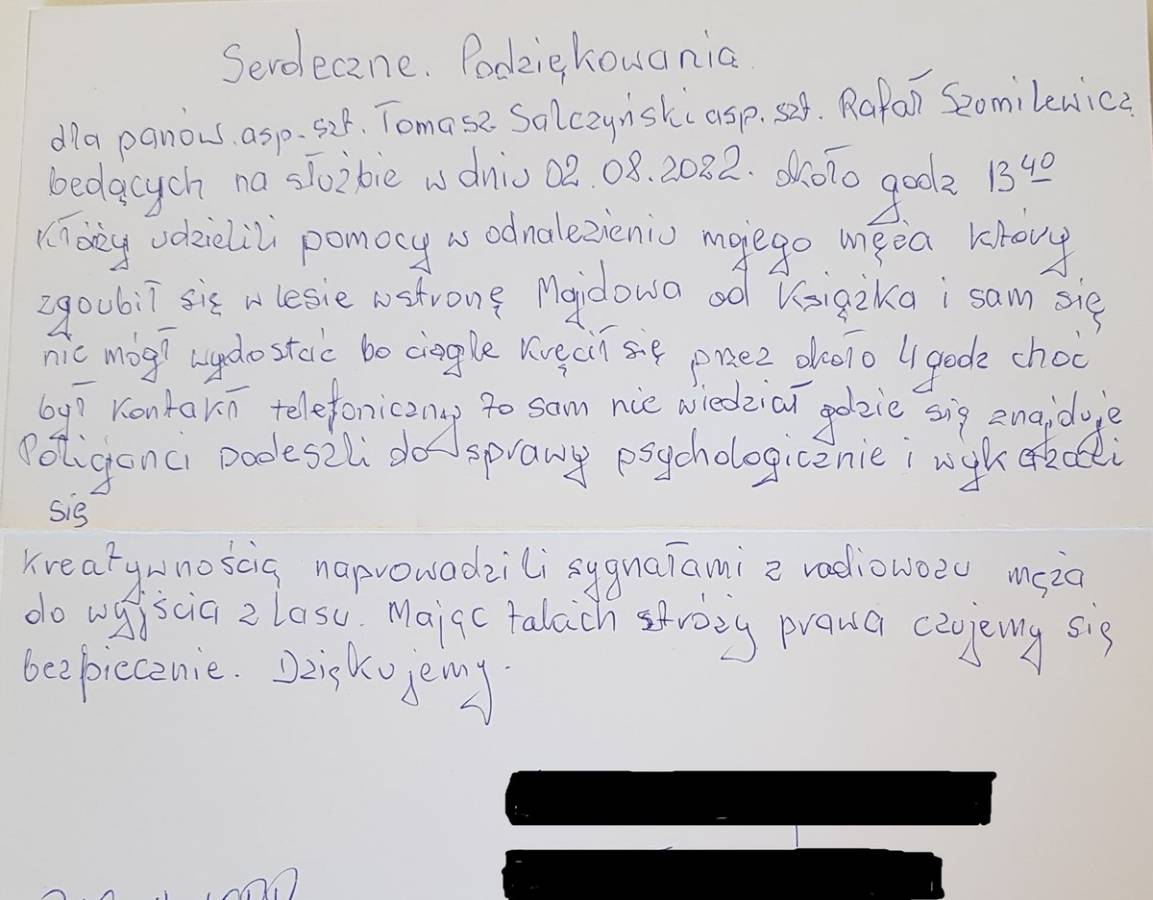 Serdeczne. Podziękowania
dla panów. asp. szt. Tomasz Salczyński asp. szt. Rafał Szomilewicz
bedących na służbie w dniu 02.08.2022. około godz 13 40
Którzy udzielili pomocy w odnalezieniu mojego męża który
zgoubił się w lesie wstronę Majdowa od Książka i sam się
nie mógł wydostać bo ciągle Kręcił się przez około 4 godz choć
był Kontakt telefoniczny to sam nie wiedział gdzie się znajduje
Policjanci podeszli do sprawy psychologicznie i wykazali
się
Kreatywnością naprowadzili sygnałami z radiowozu męża
do wyjścia z lasu. Mając takich stróży prawa czujemy się
bezpiecznie. Dziękujemy.